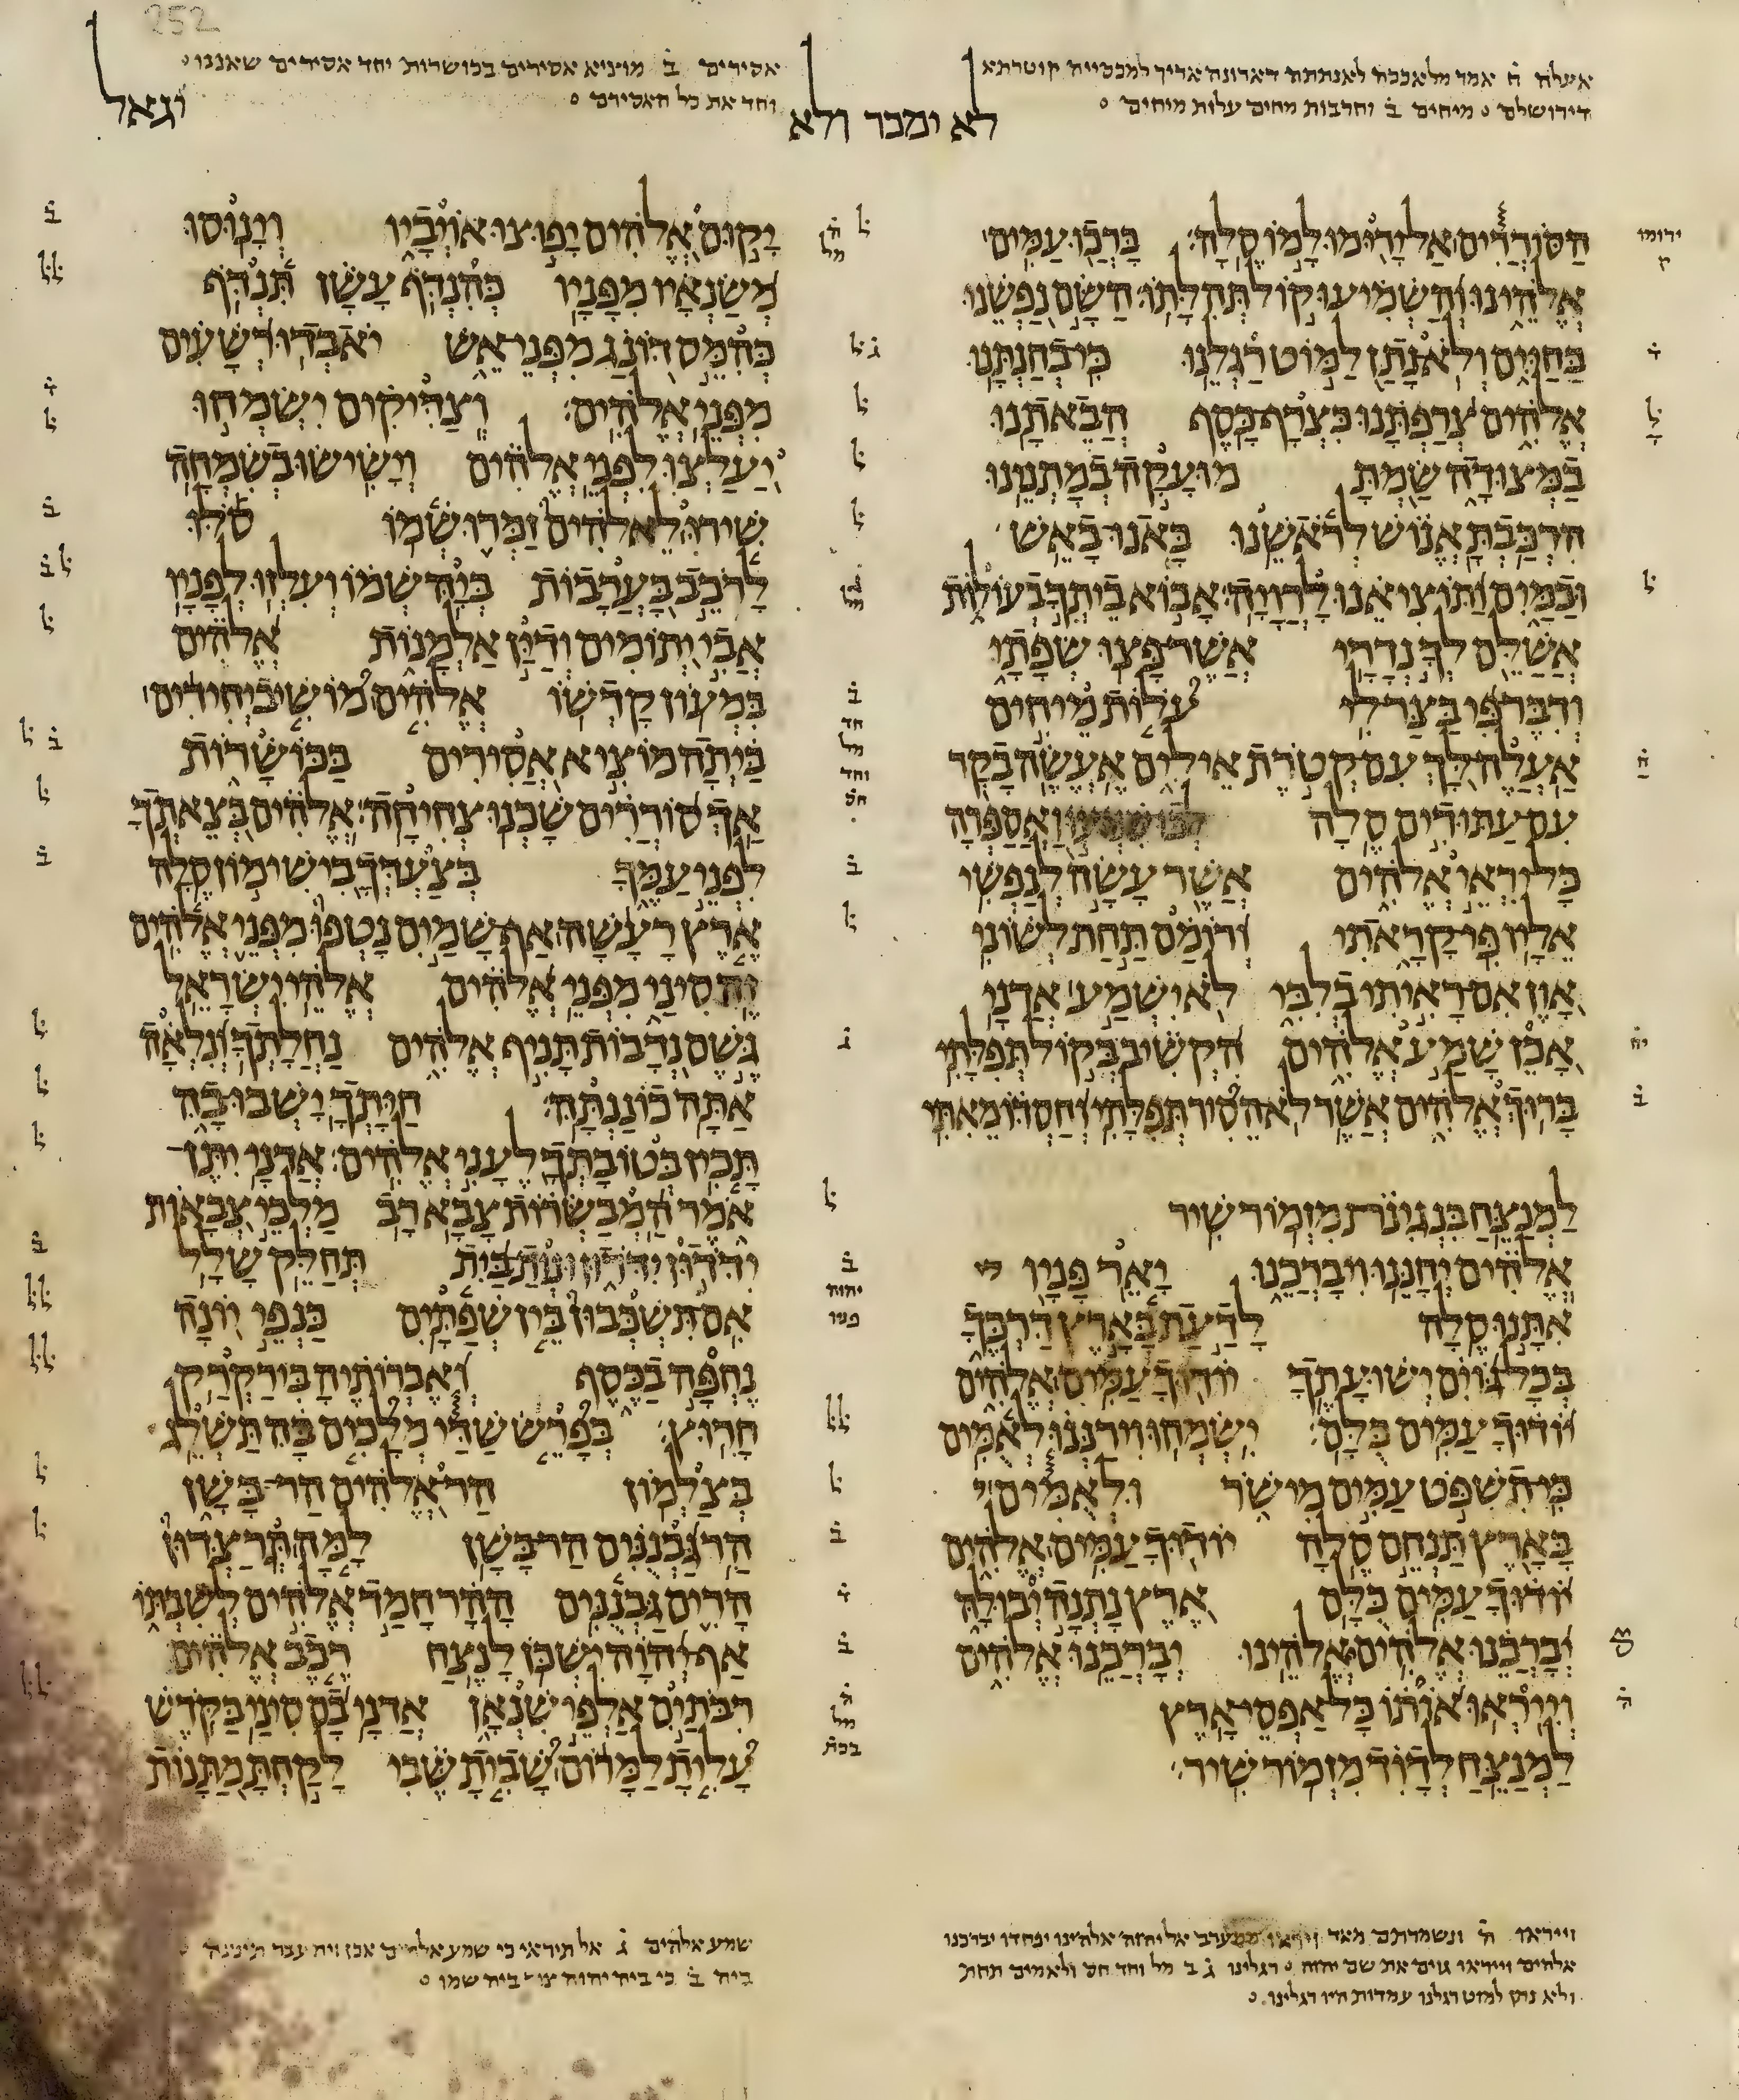 252
אעלה ה̇ אמר מלאככה לאנתתה דאדונה אדיך למכסייה קוטרתא
דירושלם ○ מיחים ב̇ וחרבות מחים עלות מיחים ○
לא ימכר ולא
אסירים ב̇ מוציא אסירים בכושרות יחד אסירים שאננו ○
וחד את כל האסירם ○
וגאל
הסוררים אל ירומו למו סלה ברכו עמים
אלהינו והשמיעו קול תהלתו השם נפשנו
בחיים ולא נתן למוט רגלנו כי בחנתנו
אלהים צרפתנו כצרף כסף הבאתנו
במצודה שמת מועקה במתנינו
הרכבת אנוש לראשנו באנו באש
ובמים ותוציאנו לרויה אבוא ביתך בעולות
אשלם לך נדרי אשר פצו שפתי
ודבר פי בצר לי עלות מיחים
אעלה לך עם קטרת אילים אעשה בקר
עם עתודים סלה לכו שמעו ואספרה
כל יראי אלהים אשר עשה לנפשי
אליו פי קראתי ורומם תחת לשוני
און אם ראיתי בלבי לא ישמע אדני
אכן שמע אלהים הקשיב בקול תפלתי
ברוך אלהים אשר לא הסיר תפלתי וחסדו מאתי
למנצח בנגינת מזמור שיר
אלהים יחננו ויברכנו יאר פניו
אתנו סלה לדעת בארץ דרכך
בכל גוים ישועתך יודוך עמים אלהים
יודוך עמים כלם ישמחו וירננו לאמים
כי תשפט עמים מישר ולאמים
בארץ תנחם סלה יודוך עמים אלהים
יודוך עמים כלם ארץ נתנה יבולה
יברכנו אלהים אלהינו יברכנו אלהים
וייראו אותו כל אפסי ארץ
למנצח לדוד מזמור שיר
יקום אלהים יפוצו אויביו וינוסו
משנאיו מפניו כהנדף עשן תנדף
כהמס דונג מפני אש יאבדו רשעים
מפני אלהים וצדיקים ישמחו
יעלצו לפני אלהים וישישו בשמחה
שירו לאלהים זמרו שמו סלו
לרכב בערבות ביה שמו ועלזו לפניו
אבי יתומים ודין אלמנות אלהים
במעון קדשו אלהים מושיב יחידים
ביתה מוציא אסירים בכושרות
אך סוררים שכנו צחיחה אלהים בצאתך
לפני עמך בצעדך בישימון סלה
ארץ רעשה אף שמים נטפו מפני אלהים
זה סיני מפני אלהים אלהי ישראל
גשם נדבות תניף אלהים נחלתך ונלאה
אתה כוננתה חיתך ישבו בה
תכין בטובתך לעני אלהים אדני יתן
אמר המבשרות צבא רב מלכי צבאות
ידדון ידדון ונות בית תחלק שלל
אם תשכבון בין שפתים כנפי יונה
נחפה בכסף ואברותיה בירקרק
חרוץ בפרש שדי מלכים בה תשלג
בצלמון הר אלהים הר בשן
הר גבננים הר בשן למה תרצדון
הרים גבננים ההר חמד אלהים לשבתו
אף יהוה ישכן לנצח רכב אלהים
רבתים אלפי שנאן אדני בם סיני בקדש
עלית למרום שבית שבי לקחת מתנות
וייראו ה̇ ונשמרתם מאד וייראו ממערב אל יהוה אלהינו יפחדו יברכנו
אלהים וייראו גוים את שם יהוה ○ רגלינו ג̇ ב מל וחד חס ולאמים תחת
ולא נתן למוט רגלנו עמדות היו רגלינו ○
שמע אלהים ג̇ אל תיראי כי שמע אלהים אכן
ביה ב̇ כי ביה יהוה צור ביה שמו ○